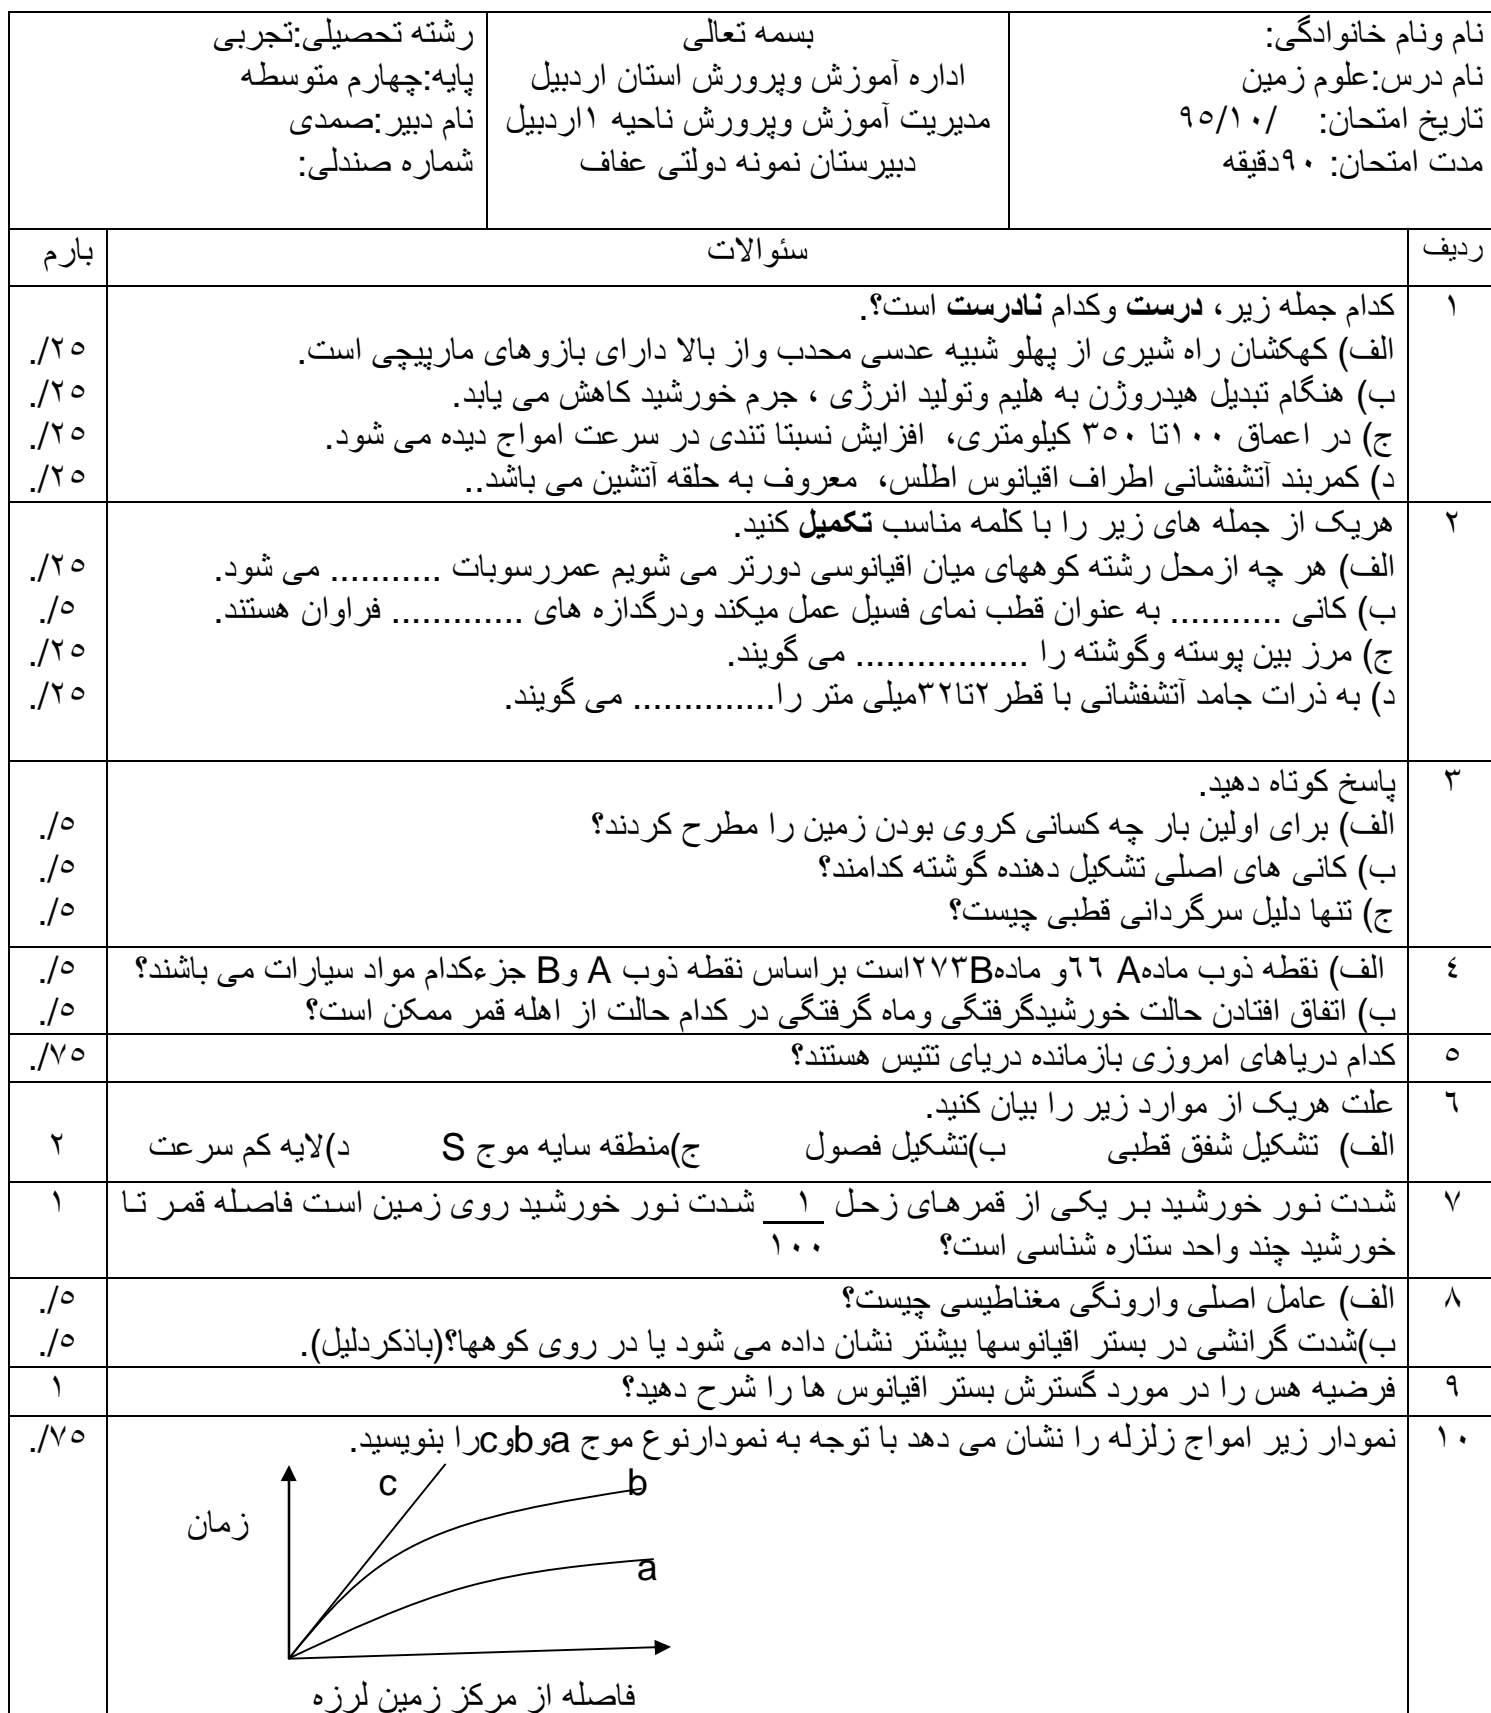 نام ونام خانوادگی:
نام درس:علوم زمین
تاریخ امتحان: /۹۵/۱۰
مدت امتحان: ۹۰دقیقه
بسمه تعالی
اداره آموزش وپرورش استان اردبیل
مدیریت آموزش وپرورش ناحیه ۱اردبیل
دبیرستان نمونه دولتی عفاف
رشته تحصیلی:تجربی
پایه:چهارم متوسطه
نام دبیر:صمدی
شماره صندلی:
ردیف سئوالات بارم
۱ کدام جمله زیر، درست وکدام نادرست است؟.
الف) کهکشان راه شیری از پهلو شبیه عدسی محدب واز بالا دارای بازوهای مارپیچی است. ۲۵/.
ب) هنگام تبدیل هیدروژن به هلیم وتولید انرژی ، جرم خورشید کاهش می یابد. ۲۵/.
ج) در اعماق ۱۰۰تا ۳۵۰ کیلومتری، افزایش نسبتا تندی در سرعت امواج دیده می شود. ۲۵/.
د) کمربند آتشفشانی اطراف اقیانوس اطلس، معروف به حلقه آتشین می باشد.. ۲۵/.
۲ هریک از جمله های زیر را با کلمه مناسب تکمیل کنید.
الف) هر چه ازمحل رشته کوههای میان اقیانوسی دورتر می شویم عمررسوبات ........... می شود. ۲۵/.
ب) کانی ........... به عنوان قطب نمای فسیل عمل میکند ودرگدازه های ............. فراوان هستند. ۵/.
ج) مرز بین پوسته وگوشته را ................. می گویند. ۲۵/.
د) به ذرات جامد آتشفشانی با قطر۲تا۳۲میلی متر را.............. می گویند. ۲۵/.
۳ پاسخ کوتاه دهید.
الف) برای اولین بار چه کسانی کروی بودن زمین را مطرح کردند؟ ۵/.
ب) کانی های اصلی تشکیل دهنده گوشته کدامند؟ ۵/.
ج) تنها دلیل سرگردانی قطبی چیست؟ ۵/.
۴ الف) نقطه ذوب مادهA ۶۶و مادهB۲۷۳است براساس نقطه ذوب A وB جزءکدام مواد سیارات می باشند؟ ۵/.
ب) اتفاق افتادن حالت خورشیدگرفتگی وماه گرفتگی در کدام حالت از اهله قمر ممکن است؟ ۵/.
۵ کدام دریاهای امروزی بازمانده دریای تتیس هستند؟ ۷۵/.
۶ علت هریک از موارد زیر را بیان کنید.
الف) تشکیل شفق قطبی ب)تشکیل فصول ج)منطقه سایه موج S د)لایه کم سرعت ۲
۷ شدت نور خورشید بر یکی از قمرهای زحل ۱ شدت نور خورشید روی زمین است فاصله قمر تا ۱
خورشید چند واحد ستاره شناسی است؟ ۱۰۰
۸ الف) عامل اصلی وارونگی مغناطیسی چیست؟ ۵/.
ب)شدت گرانشی در بستر اقیانوسها بیشتر نشان داده می شود یا در روی کوهها؟(باذکردلیل). ۵/.
۹ فرضیه هس را در مورد گسترش بستر اقیانوس ها را شرح دهید؟ ۱
۱۰ نمودار زیر امواج زلزله را نشان می دهد با توجه به نمودارنوع موج aوbوcرا بنویسید. ۷۵/.
c b
زمان
a
فاصله از مرکز زمین لرزه